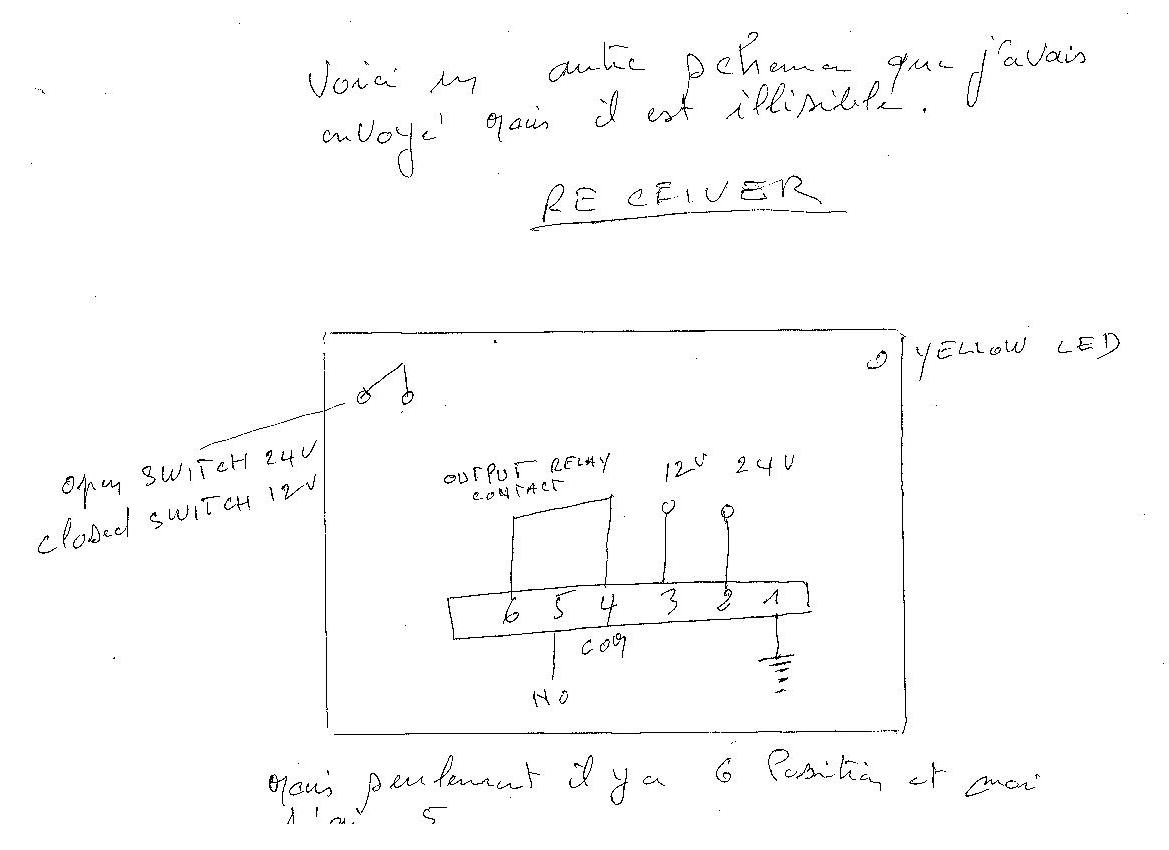 Voici un autre schema que j'avais
envoyé mais il est illisible.
RECEIVER
YELLOW LED
open SWITCH 24V
closed SWITCH 12V
OUTPUT RELAY
CONTACT
12V 24V
6 5 4 3 2 1
COM
NO
mais seulement il y a 6 Position et moi
j'ai 5